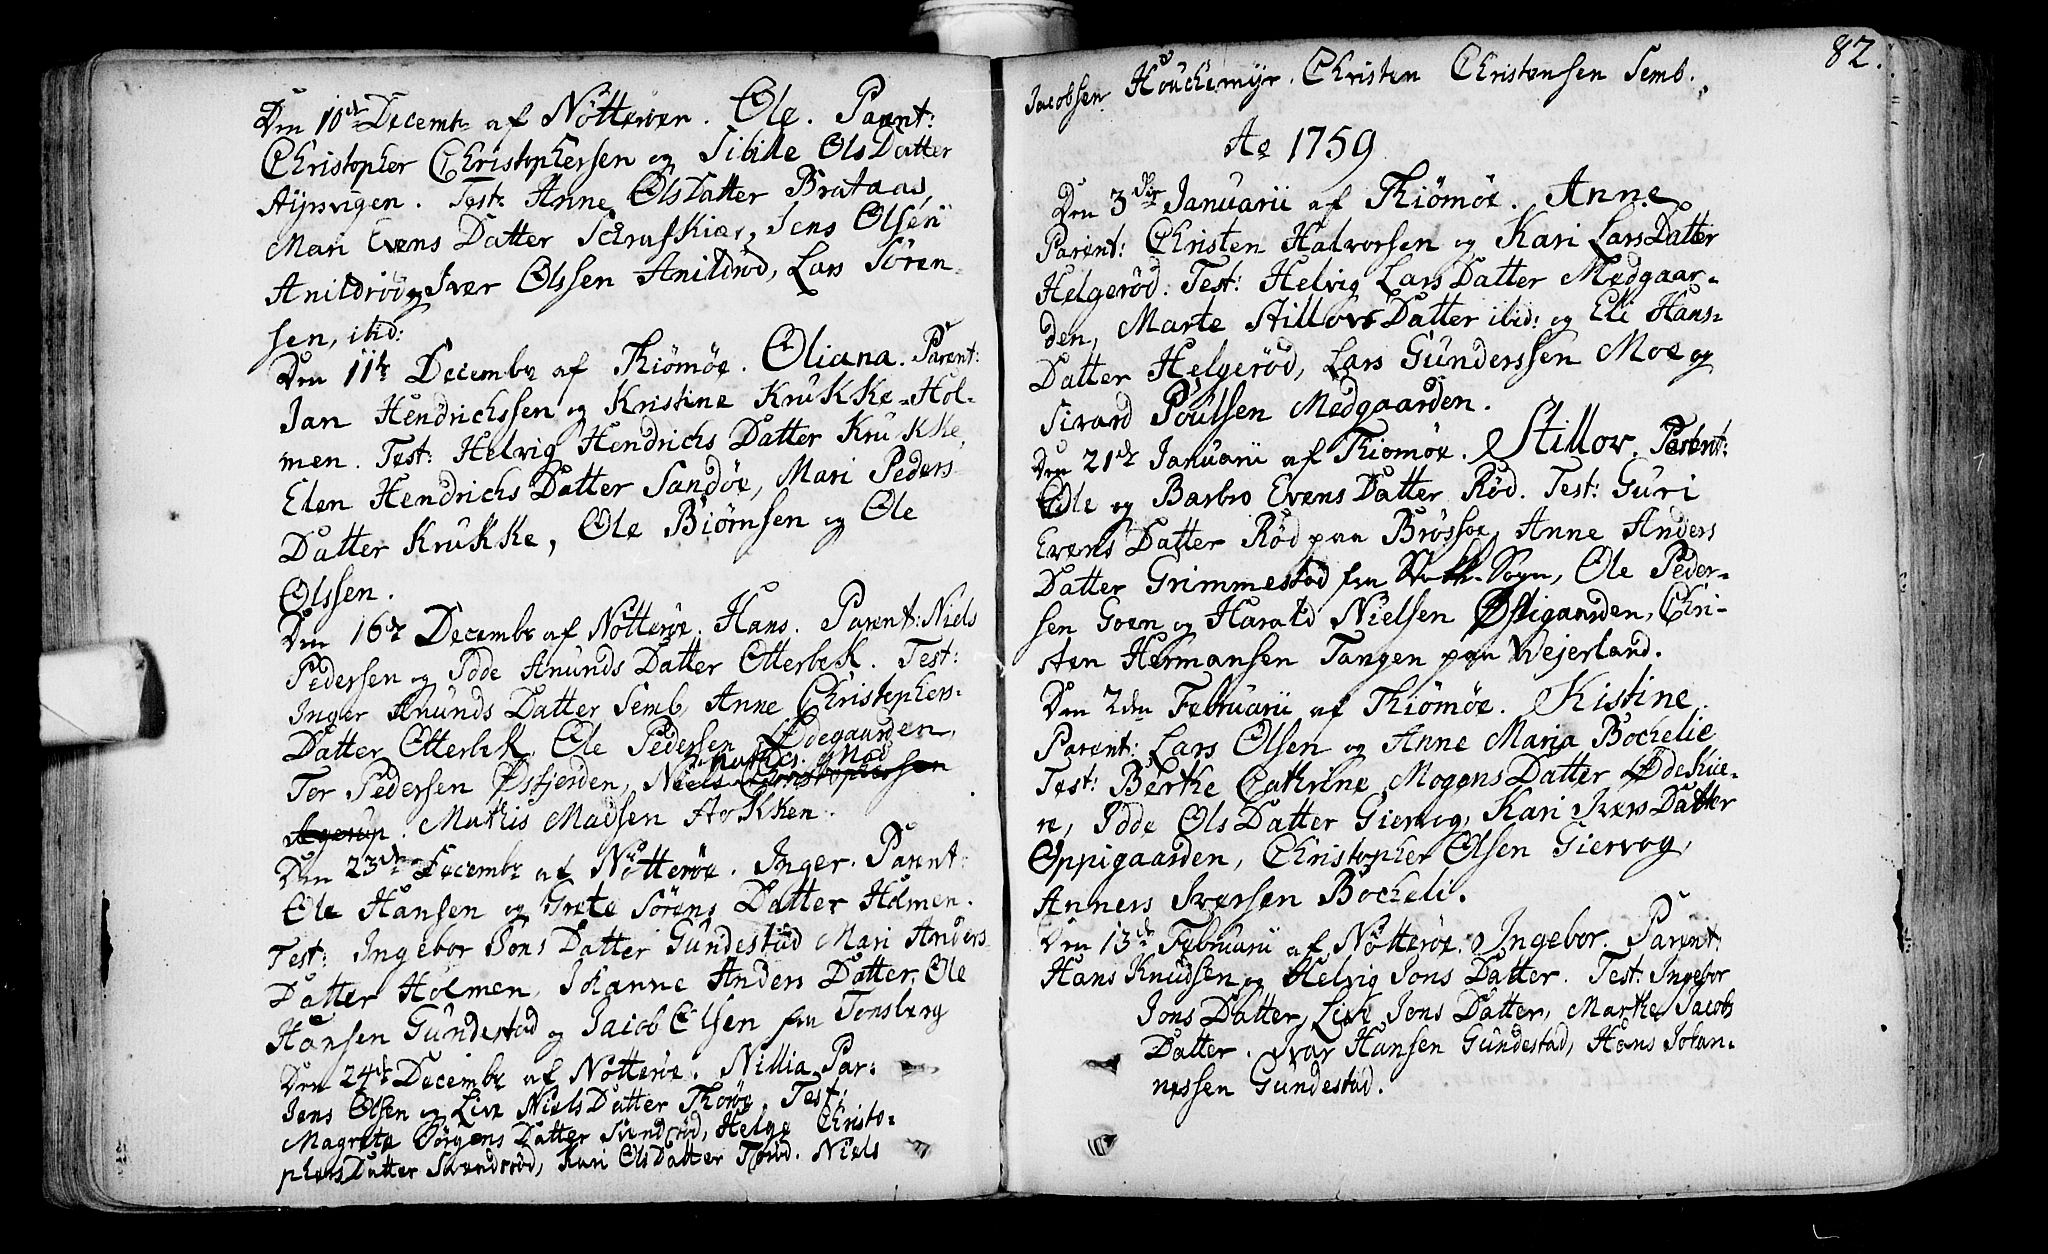 Den 10de Decembr af Nötteröen. Ole. Parent:
Christopher Christophersen og Sibille OlsDatter
Aijsvigen. Test: Anne OlsDatter Brataas,
Mari Evens Datter Skrafskiær, Jens Olsen
Anildröd og Iver Olssen Anildröd, Lars Sören-
sen, ibid:
Den 11te Decembr af Thiömöe. Oliana. Parent:
Jan Hendrichssen og Kristine Krukke-Hol-
men. Test: Helvig Hendrichs Datter Krukke,
Elen Hendrichs Datter Sandöe, Mari Peders
Datter Krukke, Ole Biörnsen og Ole
Olssen.
Den 16de Decembr af Nötteröe. Hans. Parent: Niels
Pedersen og Idde Anunds Datter Otterbek. Test:
Inger Anunds Datter Semb, Anne Christophers-
Datter Otterbek, Ole Pedersen Ødegaarden,
Tor Pedersen Østjorden, Niels Christophersen
Agerup. Mathis Madsen Horkken.
Den 23de Decembr af Nötteröe. Inger. Parent:
Ole Hansen og Grete Sörens Datter Holmen.
Test: Ingebor Jons Datter Gundestad Mari Anders
Datter Holmen, Johanne Anders Datter, Ole
Hansen Gundestad og Jacob Elsen fra Tonsberg
Den 24de Decembr af Nötteröe. Nillia Par:
Jens Olsen og Live NielsDatter Thoröe. Test:
Magrete Jörgens Datter Svendsröd, Helge Christo-
phersDatter Svendsröd, Kari OlsDatter Toröd. Niels
82.
Jacobsen Houchemyr. Christen Christensen Semb.
Ao 1759
Den 3die Januarii af Thiömöe. Anne
Parent: Christen Halvorsen og Kari LarsDatter
Helgeröd. Test: Helvig Lars Datter Medgaar-
den, Marte Stillovs Datter ibid: og Eli Hans-
Datter Helgeröd, Lars Gunderssen Moe og
Sivard Poulsen Medgaarden.
Den 21de Januarii af Thiomöe. Stillov. Parent:
Ole og Barbro Evens Datter Röd. Test: Guri
Evens Datter Röd paa Brösöe, Anne Anders
Datter Grimmestad fra Sogn, Ole Peder-
sen Goen og Harald Nielsen Østigaarden, Chri-
sten Hermansen Tangen paa Wejerland.
Den 2den Februarii af Thiömöe. Kistine
Parent: Lars Olsen og Anne Maria Bochelie
Test: Berthe Cathrine MogensDatter Ødekiæ-
r, Idde OlsDatter Giervog, Kari Ivers Datter
Oppigaarden, Christopher Olsen Giervog,
Anners Iversen Bocheli.
Den 13de Februarii af Nötteröe. Ingebor. Parent:
Hans Knudsen og Helvig Jons Datter. Test: Ingebor
Jons Datter, Live Jons Datter, Marthe Jacobs
Datter. Ivar Hansen Gundestad, Hans Johan-
nessen Gundestad.